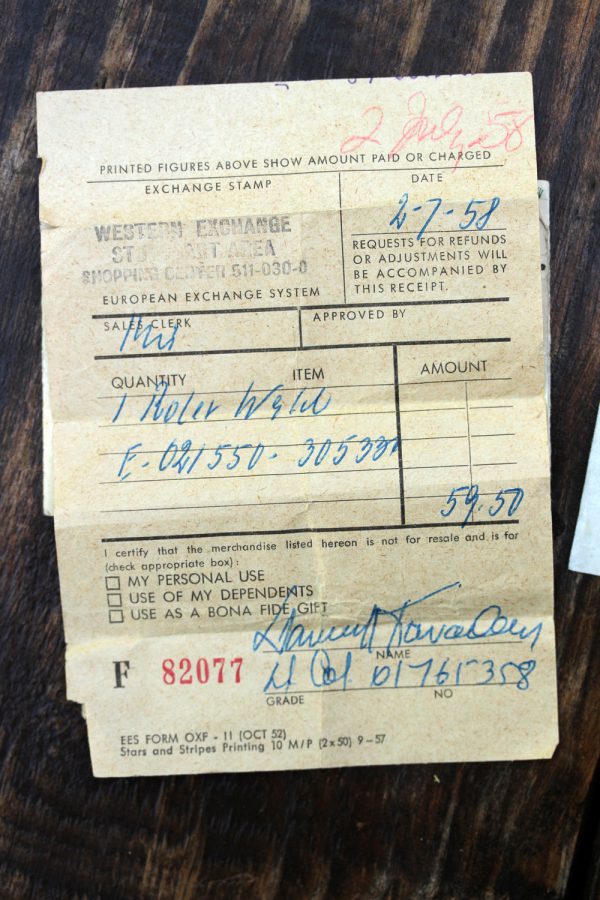 2 July 58
PRINTED FIGURES ABOVE SHOW AMOUNT PAID OR CHARGED
EXCHANGE STAMP
DATE
WESTERN EXCHANGE
AREA
SHOPPING CENTER 611-030-0
EUROPEAN EXCHANGE SYSTEM
2-7-58
REQUESTS FOR REFUNDS
OR ADJUSTMENTS WILL
BE ACCOMPANIED BY
THIS RECEIPT.
SALES CLERK
APPROVED BY
QUANTITY ITEM AMOUNT
1 Rolex
E-021550-
59.50
I certify that the merchandise listed hereon is not for resale and is for
(check appropriate box):
MY PERSONAL USE
USE OF MY DEPENDENTS
USE AS A BONA FIDE GIFT
NAME
F 82077
Lt Col 01765358
GRADE NO
EES FORM OXF - 11 (OCT 52)
Stars and Stripes Printing 10 M/P (2x50) 9-57